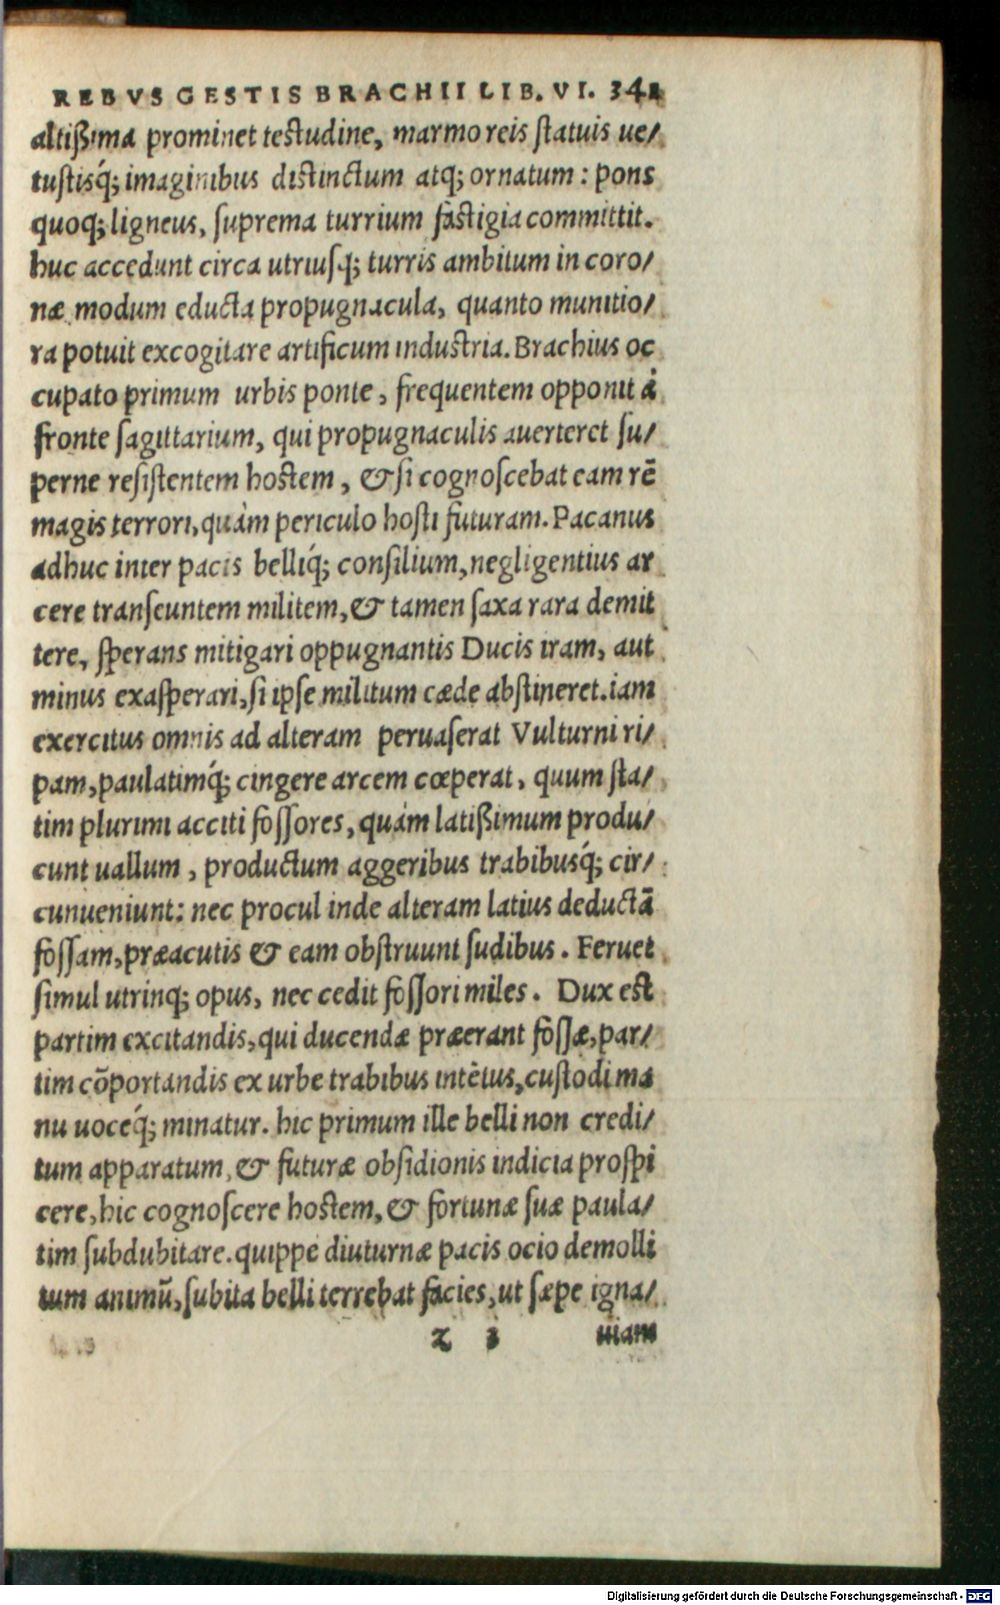 REBVS GESTIS BRACHII LIB. VI. 341
altißima prominet testudine, marmoreis statuis ue/
tustisq́; imaginibus distinctum atq; ornatum : pons
quoq; ligneus, suprema turrium fastigia committit.
huc accedunt circa utriusq; turris ambitum in coro/
næ modum educta propugnacula, quanto munitio/
ra potuit excogitare artificum industria. Brachius oc
cupato primum urbis ponte, frequentem opponit à
fronte sagittarium, qui propugnaculis auerteret su/
perne resistentem hostem, & si cognoscebat eam rē
magis terrori, quàm periculo hosti futuram. Pacanus
adhuc inter pacis belliq́; consilium, negligentius ar
cere transeuntem militem, & tamen saxa rara demit
tere, sperans mitigari oppugnantis Ducis iram, aut
minus exasperari, si ipse militum cæde abstineret. iam
exercitus omnis ad alteram peruaserat Vulturni ri/
pam, paulatimq́; cingere arcem cœperat, quum sta/
tim plurimi acciti fossores, quàm latißimum produ/
cunt uallum, productum aggeribus trabibusq́; cir/
cunueniunt: nec procul inde alteram latius deductā
fossam, præacutis & eam obstruunt sudibus. Feruet
simul utrinq; opus, nec cedit fossori miles. Dux est
partim excitandis, qui ducendæ præerant fossæ, par/
tim cōportandis ex urbe trabibus intētus, custodi ma
nu uoceq́; minatur. hic primum ille belli non credi/
tum apparatum, & futuræ obsidionis indicia prospi
cere, hic cognoscere hostem, & fortunæ suæ paula/
tim subdubitare. quippe diuturnæ pacis ocio demolli
tum animū, subita belli terrebat facies, ut sæpe igna/
z 3 uiam
Digitalisierung gefördert durch die Deutsche Forschungsgemeinschaft - DFG